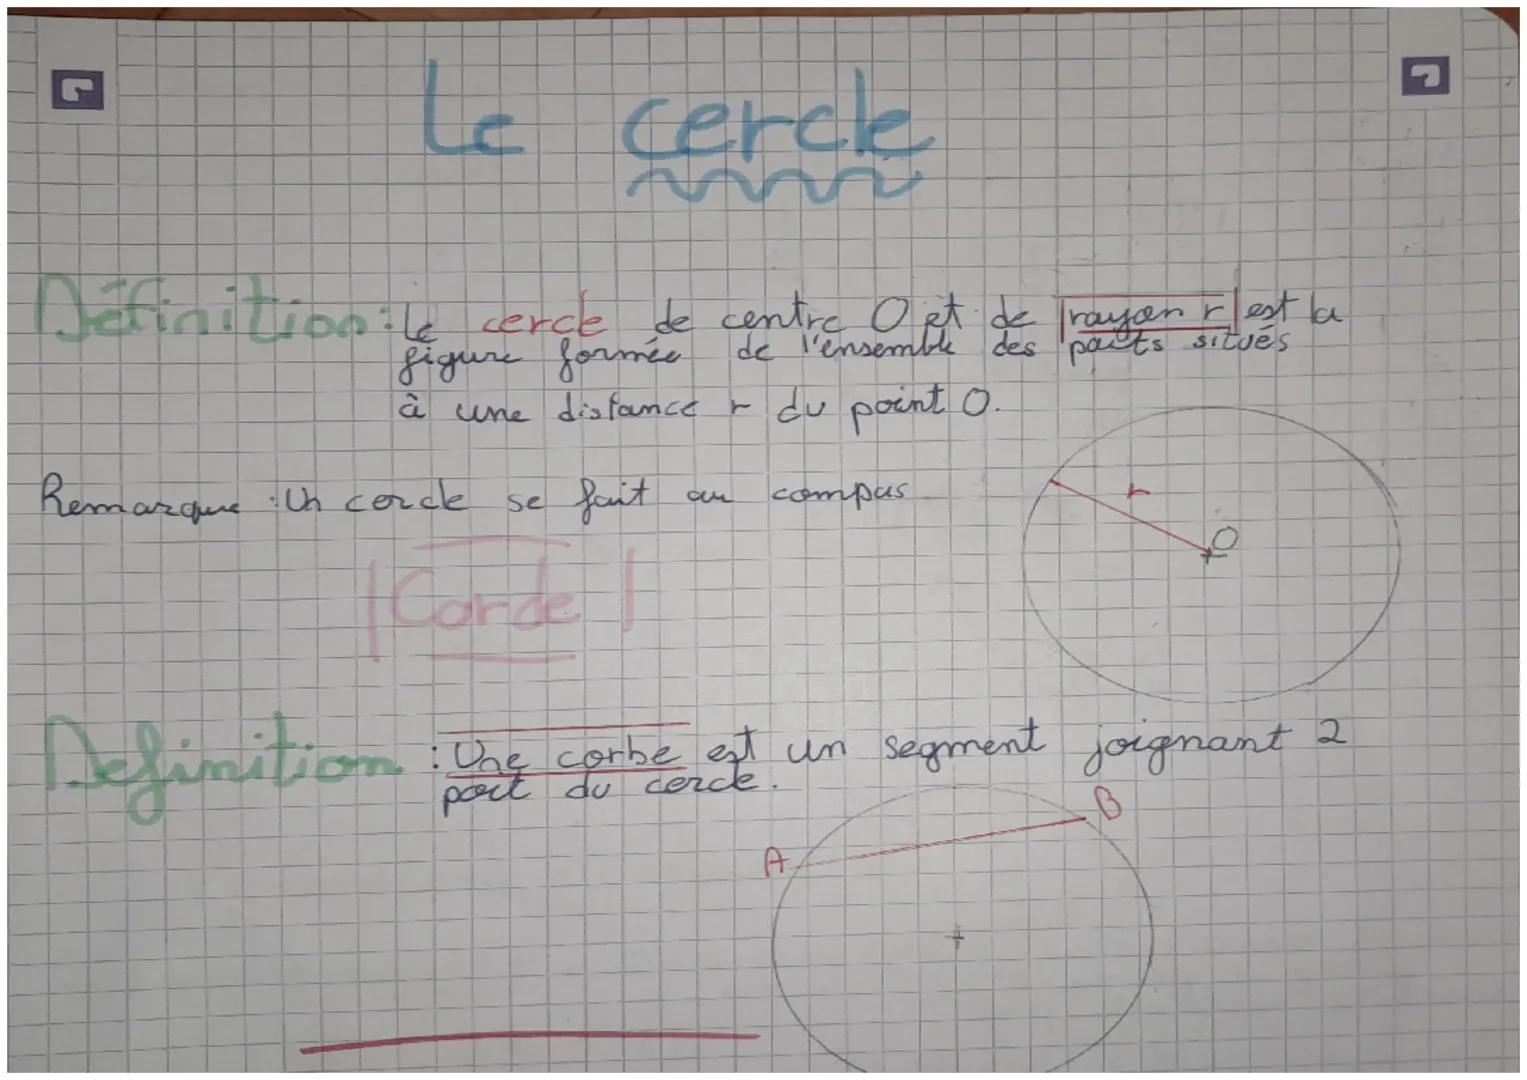 Le cercle
Définition : Le cercle de centre O et de rayon r est la
figure formée de l'ensemble des points situés
à une distance r du point O.
Remarque : Un cercle se fait au compas
r
O
Corde
Définition : Une corbe est un segment joignant 2
point du cercle.
B
A